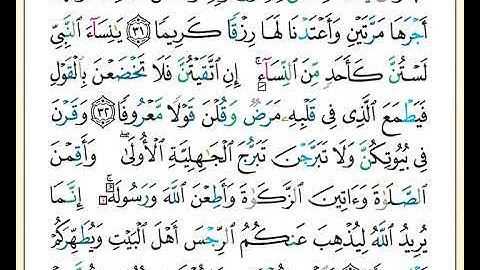 أَجْرَهَا مَرَّتَيْنِ وَأَعْتَدْنَا لَهَا رِزْقًا كَرِيمًا ٣١ يَٰنِسَآءَ ٱلنَّبِيِّ
لَسْتُنَّ كَأَحَدٍ مِّنَ ٱلنِّسَآءِ ۚ إِنِ ٱتَّقَيْتُنَّ فَلَا تَخْضَعْنَ بِٱلْقَوْلِ
فَيَطْمَعَ ٱلَّذِي فِي قَلْبِهِۦ مَرَضٌ وَقُلْنَ قَوْلًا مَّعْرُوفًا ٣٢ وَقَرْنَ
فِي بُيُوتِكُنَّ وَلَا تَبَرَّجْنَ تَبَرُّجَ ٱلْجَٰهِلِيَّةِ ٱلْأُولَىٰ ۖ وَأَقِمْنَ
ٱلصَّلَوٰةَ وَءَاتِينَ ٱلزَّكَوٰةَ وَأَطِعْنَ ٱللَّهَ وَرَسُولَهُۥٓ ۚ إِنَّمَا
يُرِيدُ ٱللَّهُ لِيُذْهِبَ عَنكُمُ ٱلرِّجْسَ أَهْلَ ٱلْبَيْتِ وَيُطَهِّرَكُمْ